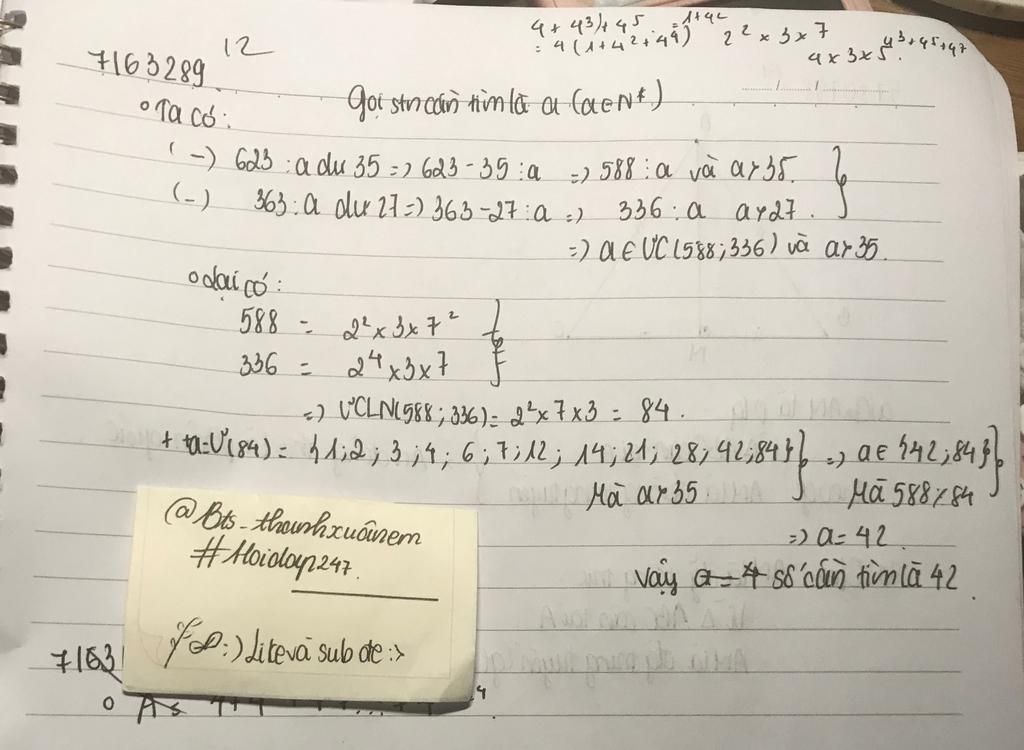 4 + 4³) + 4⁵ = 1 + 42
= 4 (1 + 4² + 4⁴) 2² × 3 × 7
4 × 3 × 5. 4³ + 4⁵ + 4⁷
7163289 12
Gọi stn cần tìm là a (a ∈ N*)
Ta có:
(-) 623 : a dư 35 => 623 - 35 : a => 588 : a và a > 35.
(-) 363 : a dư 27 => 363 - 27 : a => 336 : a a > 27.
=> a ∈ ƯC(588; 336) và a > 35.
lại có:
588 = 2² × 3 × 7²
336 = 2⁴ × 3 × 7
=> ƯCLN(588; 336) = 2² × 7 × 3 = 84.
+ a = Ư(84) = {1; 2; 3; 4; 6; 7; 12; 14; 21; 28; 42; 84} => a ∈ {42; 84}
Mà a > 35 Mà 588 ⋮̸ 84
=> a = 42.
Vậy a = 4 số cần tìm là 42
@Bts_thanhxuânem
#Hoidap247.
:) Lite và sub de :>
7163